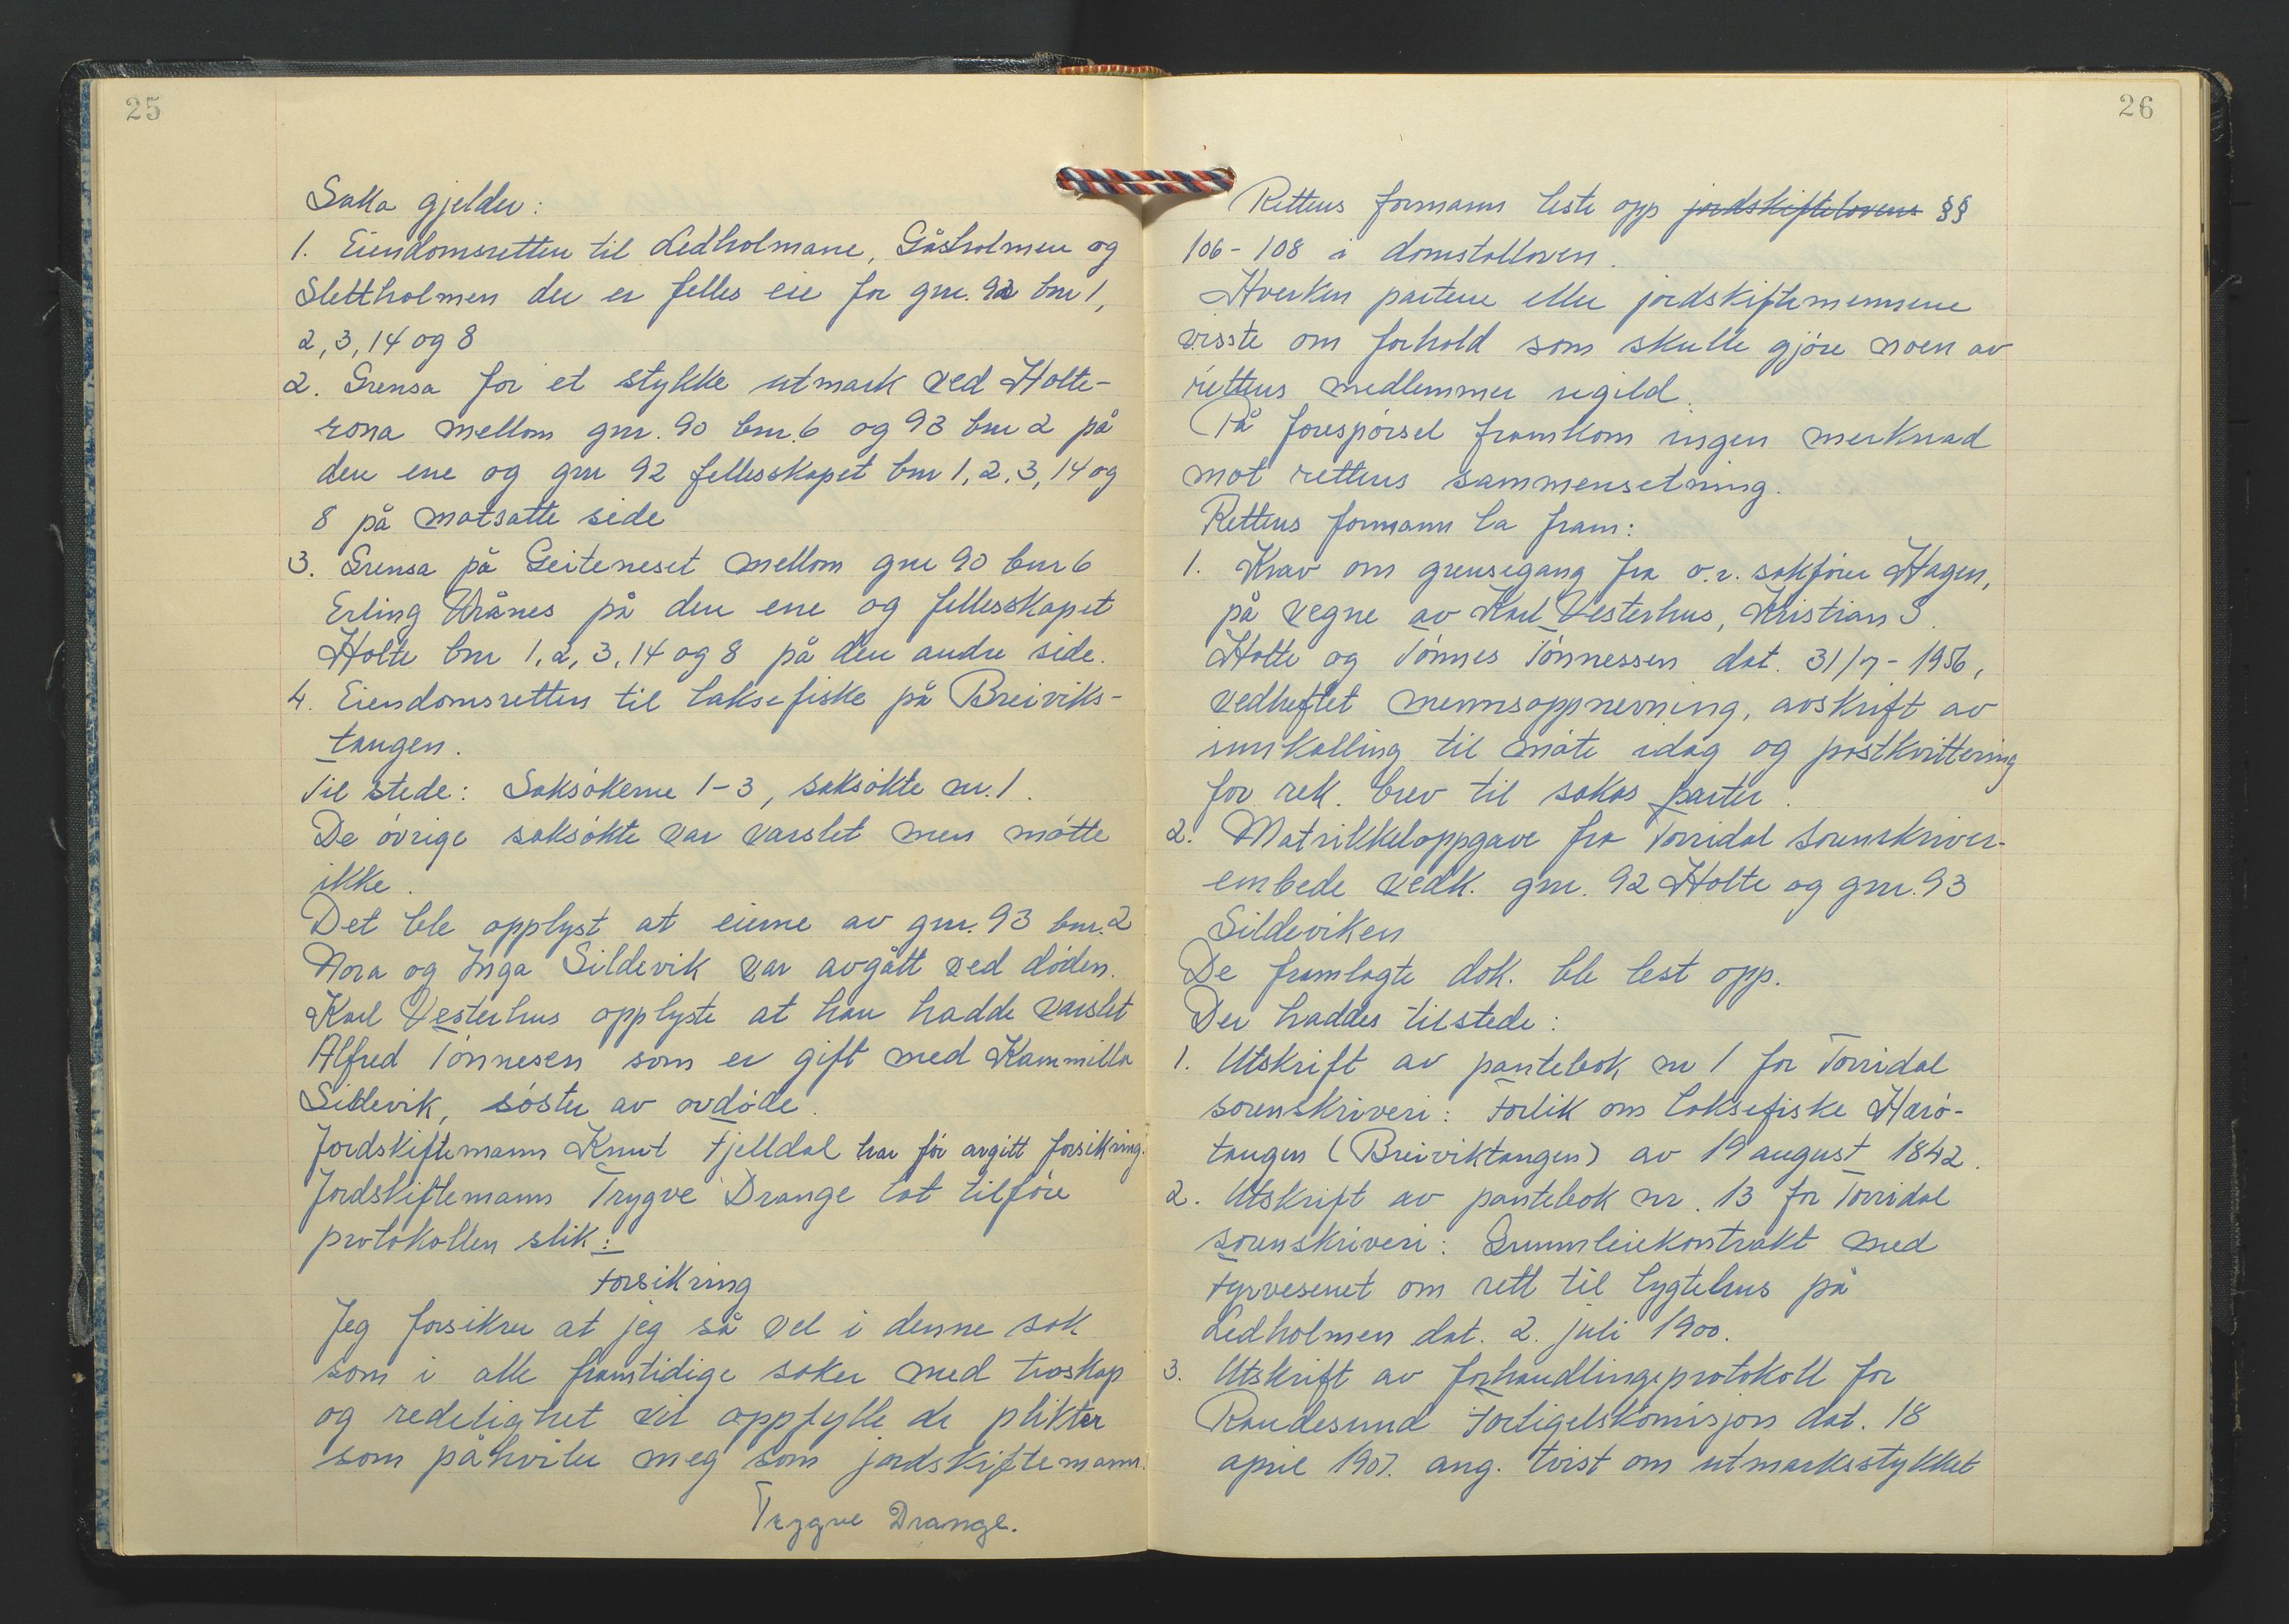 25
Saka gjelder:
1. Eiendomsretten til Ledholmane, Gåsholmen og
Slettholmen der er felles eie for gnr. 92 bnr 1,
2, 3, 14 og 8
2. Grensa for et stykke utmark ved Holte-
rona mellom gnr. 90 bnr. 6 og 93 bnr 2 på
den ene og gnr 92 fellesskapet bnr 1, 2, 3, 14 og
8 på motsatte side
3. Grensa på Geiteneset mellom gnr 90 bnr 6
Erling Vrånes på den ene og fellesskapet
Holte bnr 1, 2, 3, 14 og 8 på den andre side.
4. Eiendomsretten til laksefiske på Breiviks-
tangen.
Til stede: Saksøkerne 1-3, saksøkte nr. 1.
De øvrige saksøkte var varslet men møtte
ikke.
Det ble opplyst at eierne av gnr. 93 bnr. 2
Nora og Inga Sildevik var avgått ved døden.
Karl Vesterhus opplyste at han hadde varslet
Alfred Tønnesen som er gift med Kammilla
Sildevik, søster av avdøde.
Jordskiftemann Knut Fjelldal har før avgitt forsikring.
Jordskiftemann Trygve Drange lot tilføre
protokollen slik:
Forsikring
Jeg forsikrer at jeg så vel i denne sak
som i alle framtidige saker med troskap
og redelighet vil oppfylle de plikter
som påhviler meg som jordskiftemann.
Trygve Drange.
26
Rettens formann leste opp jordskiftelovens §§
106-108 i domstolloven.
Hverken partene eller jordskiftemennene
visste om forhold som skulle gjøre noen av
rettens medlemmer ugild.
På forespørsel framkom ingen merknad
mot rettens sammensetning.
Rettens formann la fram:
1. Krav om grensegang fra o.r. sakfører Hagen,
på vegne av Karl Vesterhus, Kristian S.
Holte og Tønnes Tønnessen dat. 31/7-1956,
vedheftet mennsoppnevning, avskrift av
innkalling til møte idag og postkvittering
for rek. brev til sakas parter.
2. Matrikkeloppgave fra Torridal sorenskriver-
embede vedk. gnr. 92 Holte og gnr. 93
Sildeviken
De framlagte dok. ble lest opp.
Der haddes tilstede:
1. Utskrift av pantebok nr 1 for Torridal
sorenskriveri: Forlik om laksefiske Harø-
tangen (Breiviktangen) av 19 august 1842.
2. Utskrift av pantebok nr. 13 for Torridal
sorenskriveri: Grunnleiekontrakt med
Fyrvesenet om rett til lygtehus på
Ledholmen dat. 2. juli 1900.
3. Utskrift av forhandlingsprotokoll for
Randesund Forligelskomisjon dat. 18
april 1907. ang. tvist om utmarksstykket